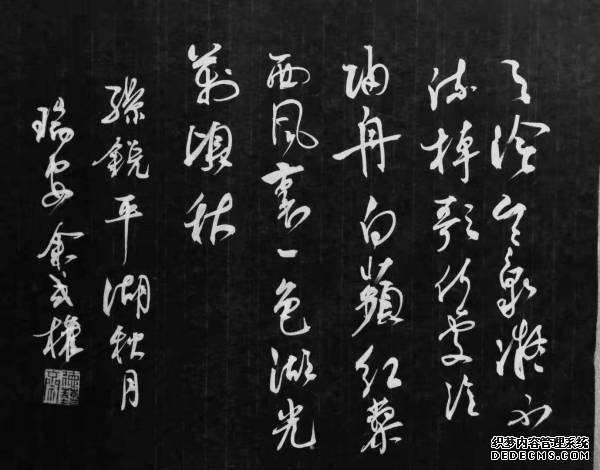 月冷寒泉凝不
流棹歌何處泛
歸舟白蘋紅蓼
西風裏一色湖光
萬頃秋
孫銳平湖秋月
瑞安
织梦内容管理系统
DEDECMS.COM